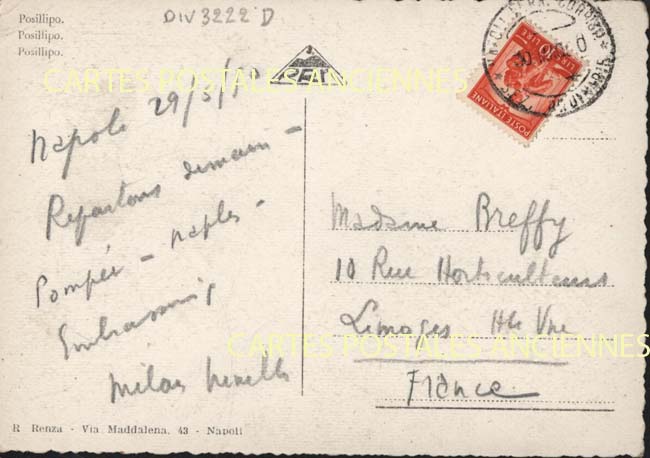 Posillipo.
Posillipo.
Posillipo.
DIV3222 D
CARTES POSTALES ANCIENNES
10
LIRE
POSTE ITALIANE
Napoli 29/5/
Repartons demain -
Pompéi - Naples -
Embrassons
Madame Breffy
10 Rue Horticulteurs
Limoges Hte Vne
France
CARTES POSTALES ANCIENNES
R Renza - Via Maddalena, 43 - Napoli